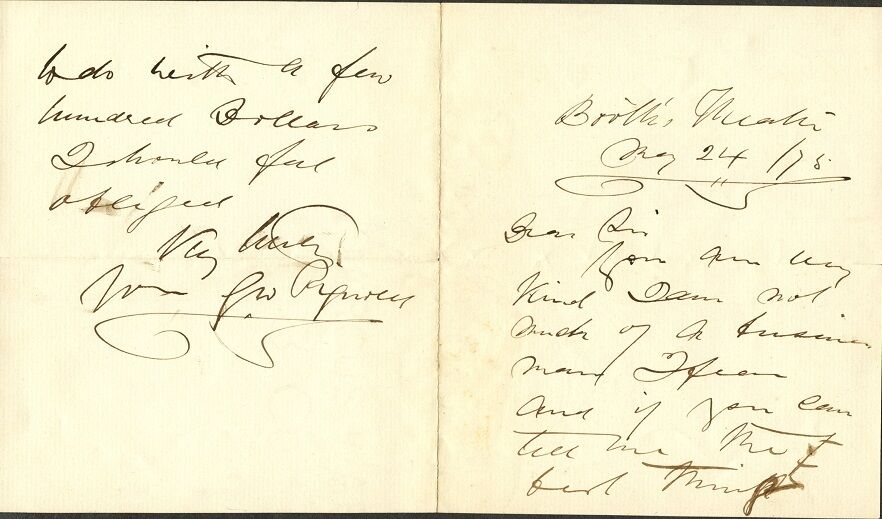 Booth's Theatre
May 24th /75
Dear Sir
You are very
kind I am not
much of a business
man I fear
and if you can
tell me the
best thing
to do with a few
hundred Dollars
I should feel
obliged
Very truly
yours Geo Rignold